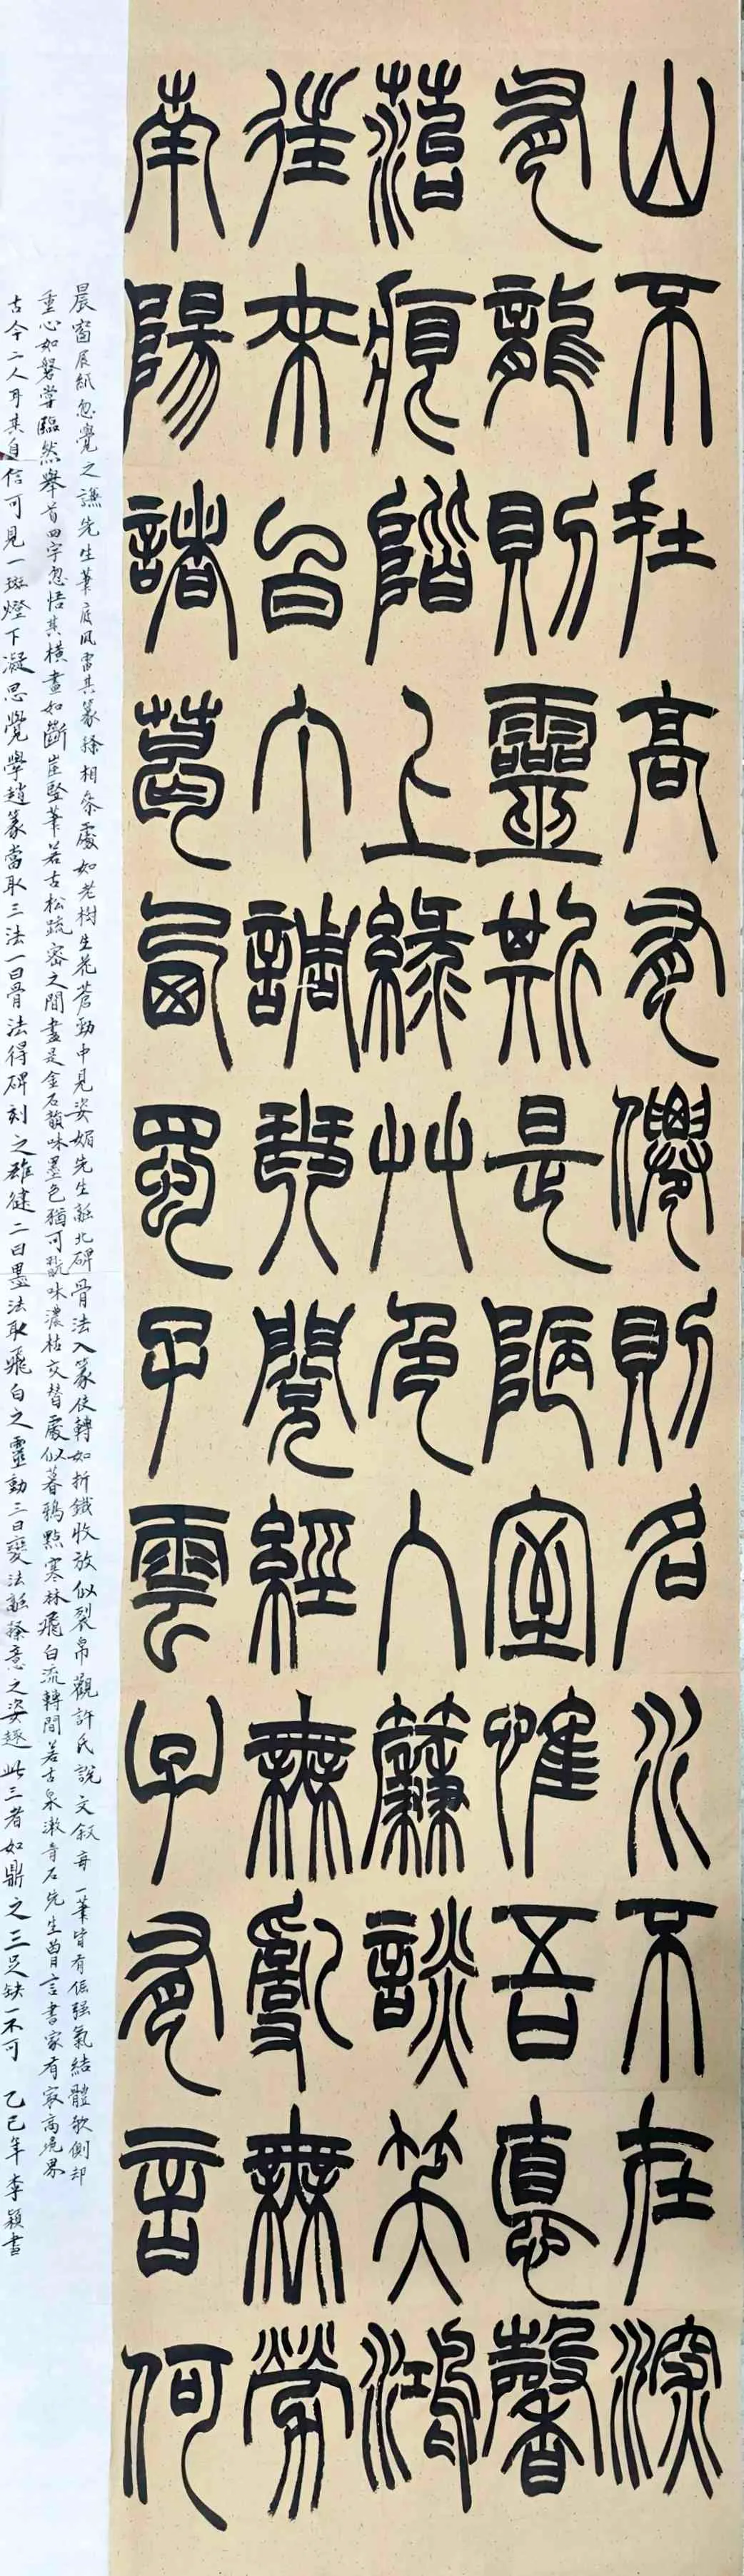 山不在高有僊則名水不在深
有龍則靈斯是陋室惟吾悳馨
菭痕階上綠艸色入簾談笑鴻
往來白丁調琴閱經無亂無勞
南陽諸葛西蜀子雲孔有言何
晨窗展紙忽覺之謙先生筆底風雷其篆隸相參處如老樹生花蒼勁中見姿媚先生融北碑骨法入篆使轉如折鐵收放似裂帛觀許氏說文敘每一筆皆有倔強氣結體欹側却
重心如磐嘗臨然舉首四字忽悟其橫畫如斷崖竪筆若古松疏密之間盡是金石韻味墨色猶可翫味濃枯交替處似暮鴉點寒林飛白流轉間若古泉漱青石先生曾言書家有最高境界
古今二人耳其自信可見一斑燈下凝思覺學趙篆當取三法一曰骨法得碑刻之雄健二曰墨法取飛白之靈動三曰變法融隸意之姿趣此三者如鼎之三足缺一不可 乙巳年李穎書